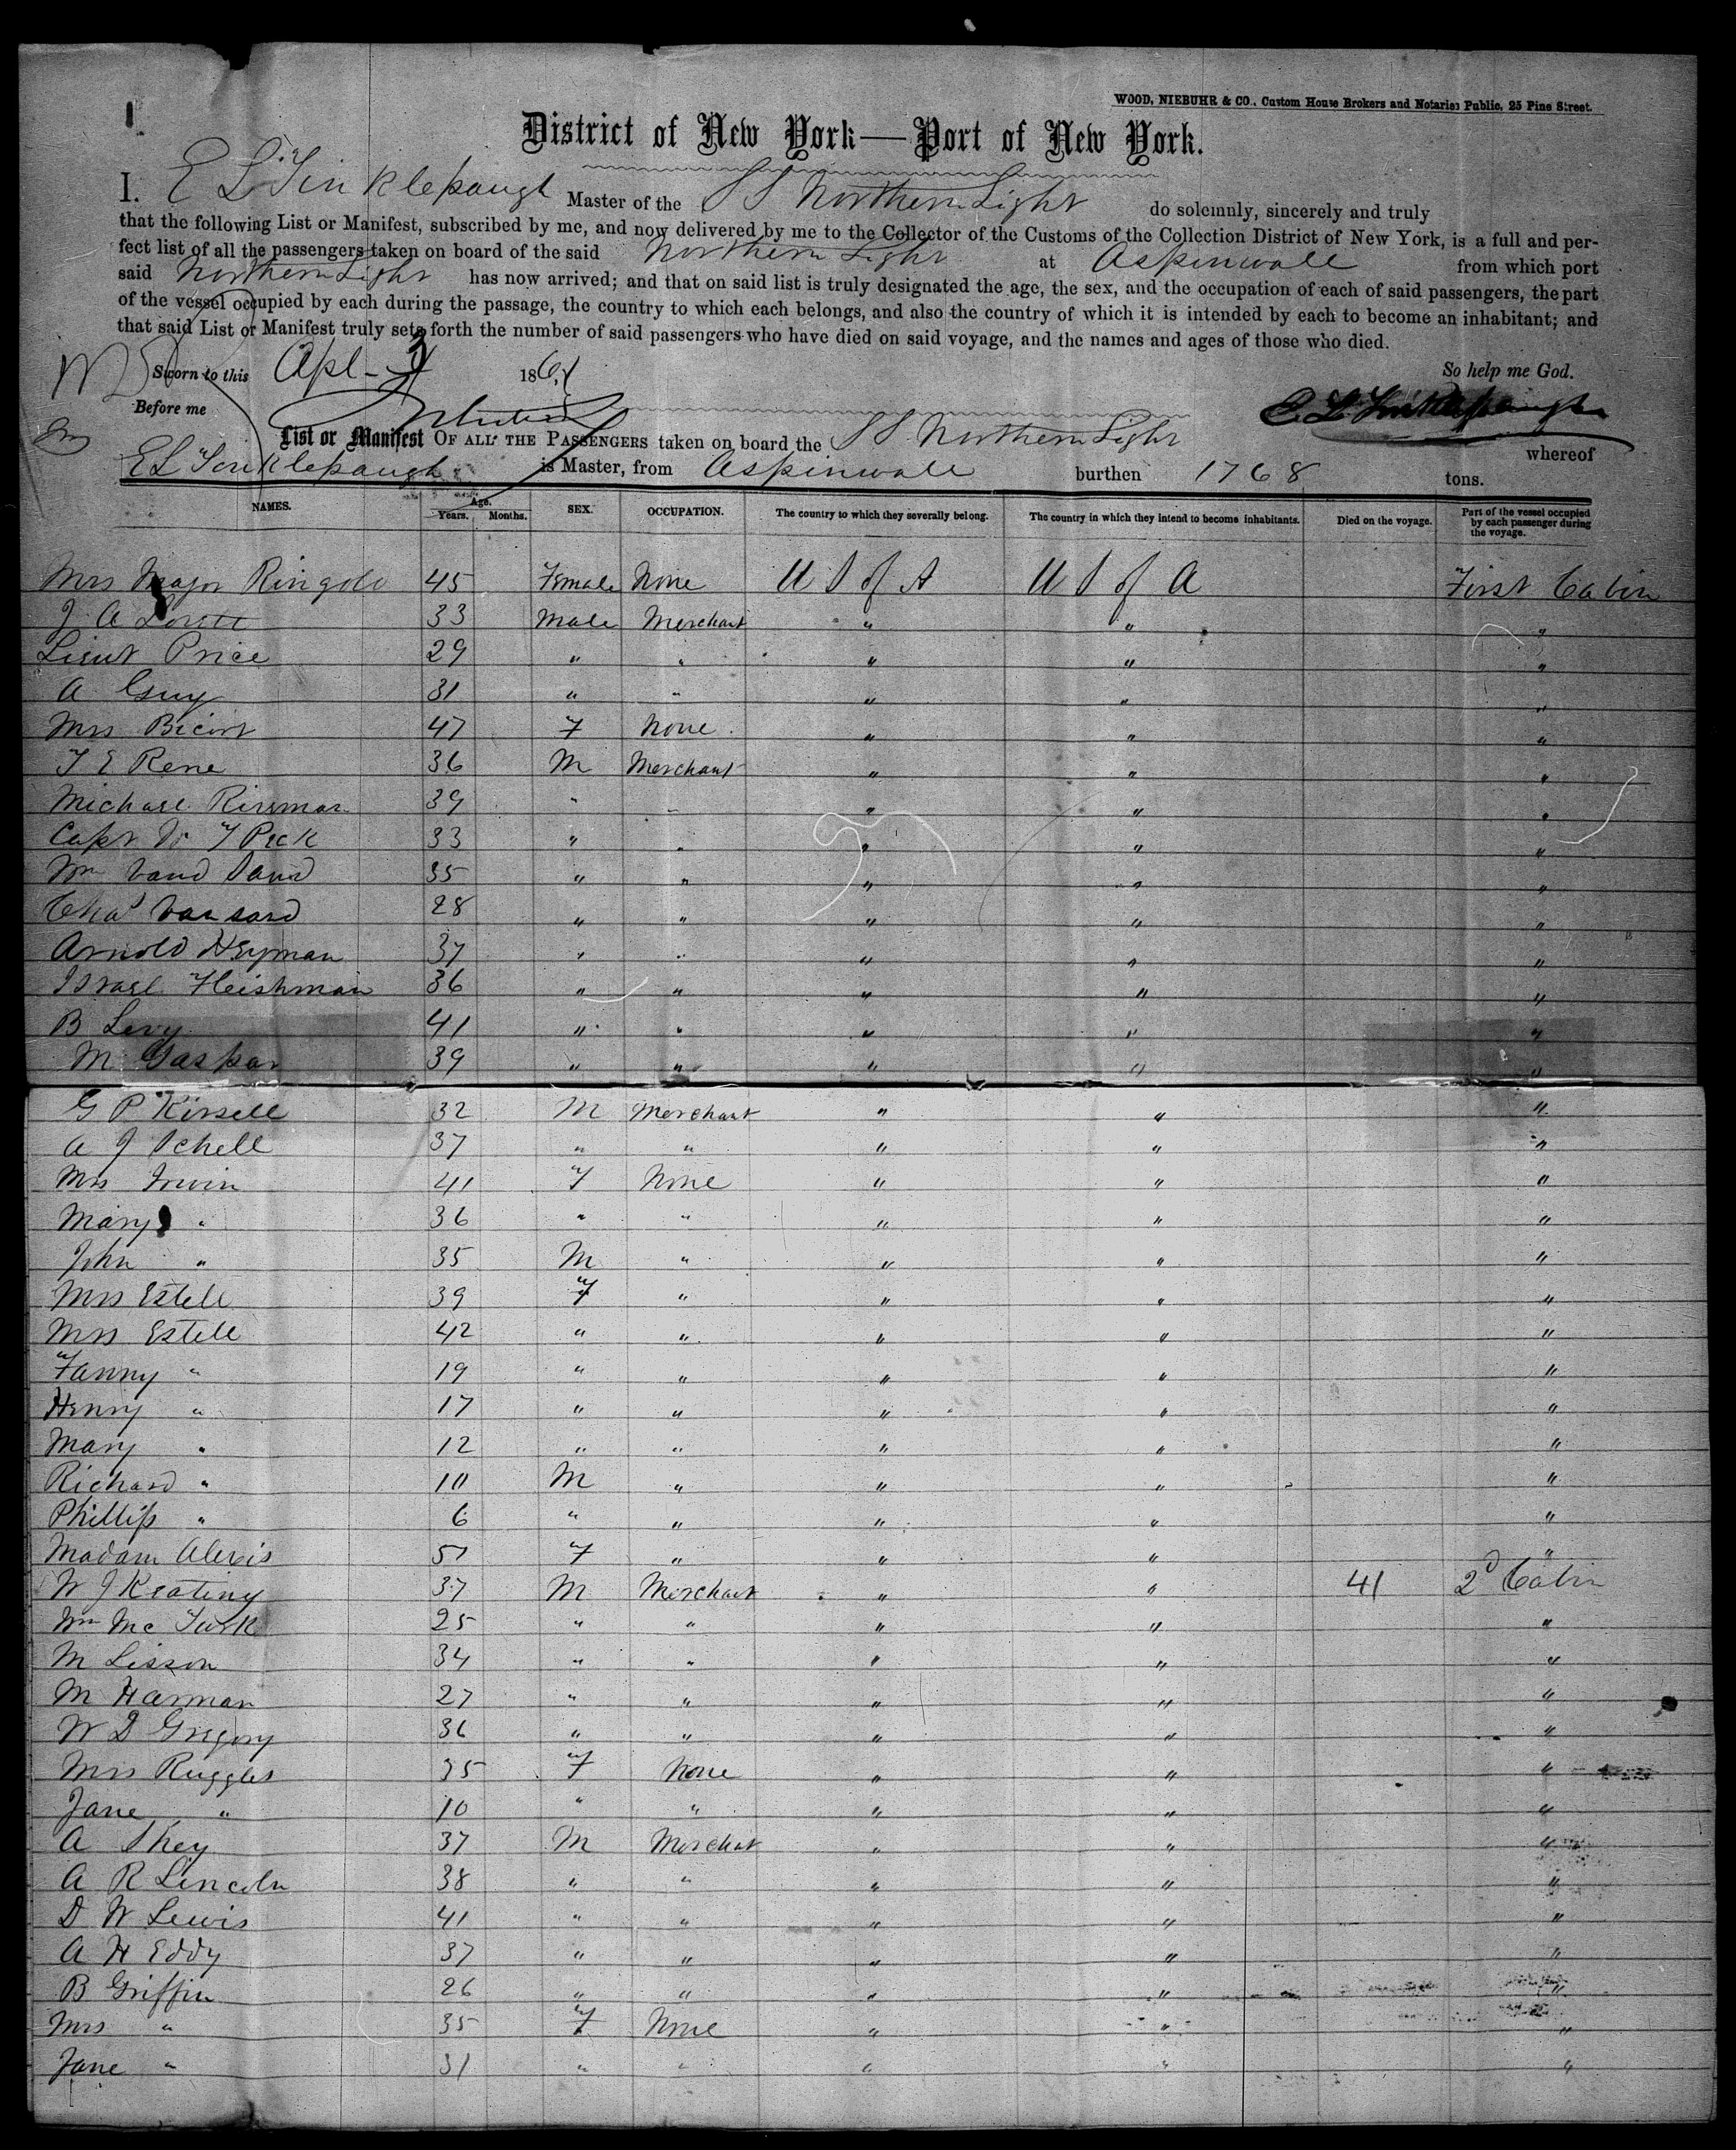 WOOD, NIEBUHR & CO., Custom House Brokers and Notaries Public, 25 Pine Street.
District of New York—Port of New York.
I. E L Tinklepaugh Master of the S S Northern Light do solemnly, sincerely and truly
that the following List or Manifest, subscribed by me, and now delivered by me to the Collector of the Customs of the Collection District of New York, is a full and per-
fect list of all the passengers taken on board of the said Northern Light at Aspinwall from which port
said Northern Light has now arrived; and that on said list is truly designated the age, the sex, and the occupation of each of said passengers, the part
of the vessel occupied by each during the passage, the country to which each belongs, and also the country of which it is intended by each to become an inhabitant; and
that said List or Manifest truly sets forth the number of said passengers who have died on said voyage, and the names and ages of those who died.
Sworn to this Apl 186 So help me God.
Before me E L Tinklepaugh
List or Manifest OF ALL THE PASSENGERS taken on board the S S Northern Light whereof
E L Tinklepaugh is Master, from Aspinwall burthen 1768 tons.
NAMES. Age. Years. Months. SEX. OCCUPATION. The country to which they severally belong. The country in which they intend to become inhabitants. Died on the voyage. Part of the vessel occupied by each passenger during the voyage.
Mrs Major Ringold 45 Female None U S of A U S of A First Cabin
J. A 33 Male Merchant " " "
Lieut Price 29 " " " " "
A Guy 31 " " " " "
Mrs 47 F None " " "
T E Rene 36 M Merchant " " "
Michael 39 " " " " "
Capt W F Peck 33 " " " " "
Wm 35 " " " " "
Chas Vansand 28 " " " " "
Arnold Heyman 37 " " " " "
Israel Fleishman 36 " " " " "
B Levy 41 " " " " "
M Gaspar 39 " " " " "
G P Kissell 32 M Merchant " " "
A J Schell 37 " " " " "
Mrs Irwin 41 F None " " "
Mary " 36 " " " " "
John " 35 M " " " "
Mrs Estell 39 F " " " "
Mrs Estell 42 " " " " "
Fanny " 19 " " " " "
Henry " 17 " " " " "
Mary " 12 " " " " "
Richard " 10 M " " " "
Phillip " 6 " " " " "
Madam Alexis 57 F " " " "
W J Keating 37 M Merchant " " 41 2d Cabin
Wm Mc Turk 25 " " " " "
M Lisson 34 " " " " "
M Harman 27 " " " " "
W D Gregory 36 " " " " "
Mrs Ruggles 35 F None " " "
Jane " 10 " " " " "
A Shey 37 M Merchant " " "
A R Lincoln 38 " " " " "
D W Lewis 41 " " " " "
A H Eddy 37 " " " " "
B Griffin 26 " " " " "
Mrs " 35 F None " " "
Jane " 31 " " " " "